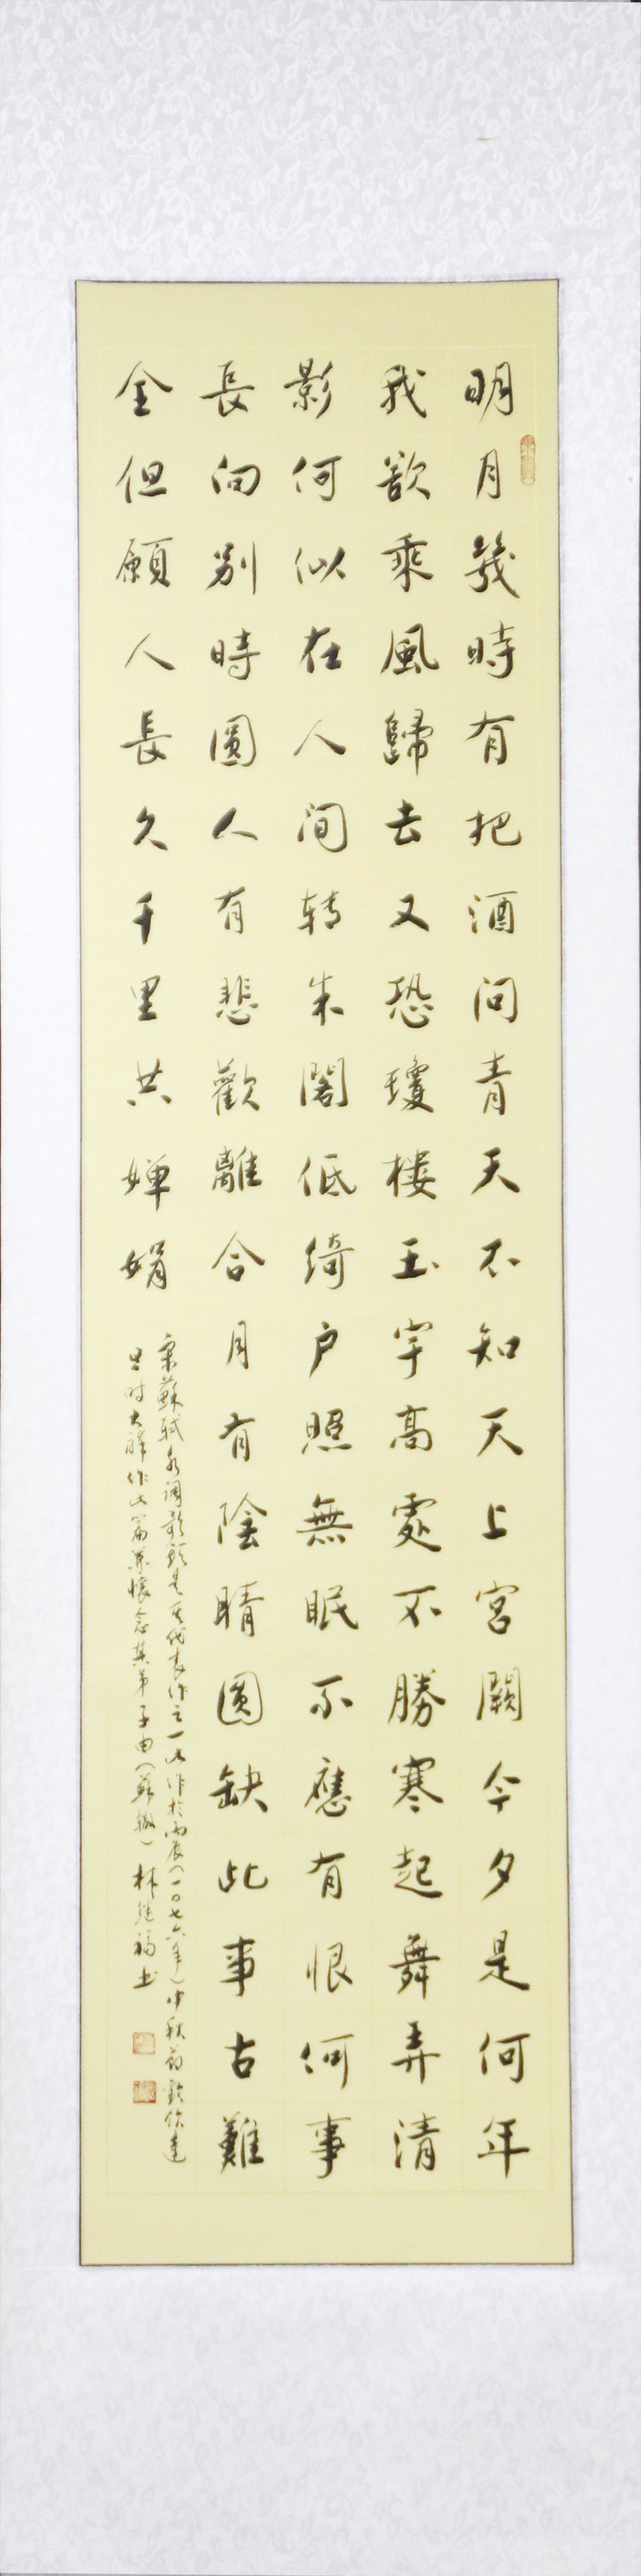 明月幾時有把酒問青天不知天上宮闕今夕是何年
我欲乘風歸去又恐瓊樓玉宇高處不勝寒起舞弄清
影何似在人间转朱閣低绮户照無眠不應有恨何事
長向别時圓人有悲歡離合月有陰晴圓缺此事古難
全但願人長久千里共嬋娟
宋蘇軾水调歌頭是其代表作之一此作於丙辰(一〇七六年)中秋節歡飲達
旦时大醉作此篇兼懷念其弟子由(蘇轍) 林继福书